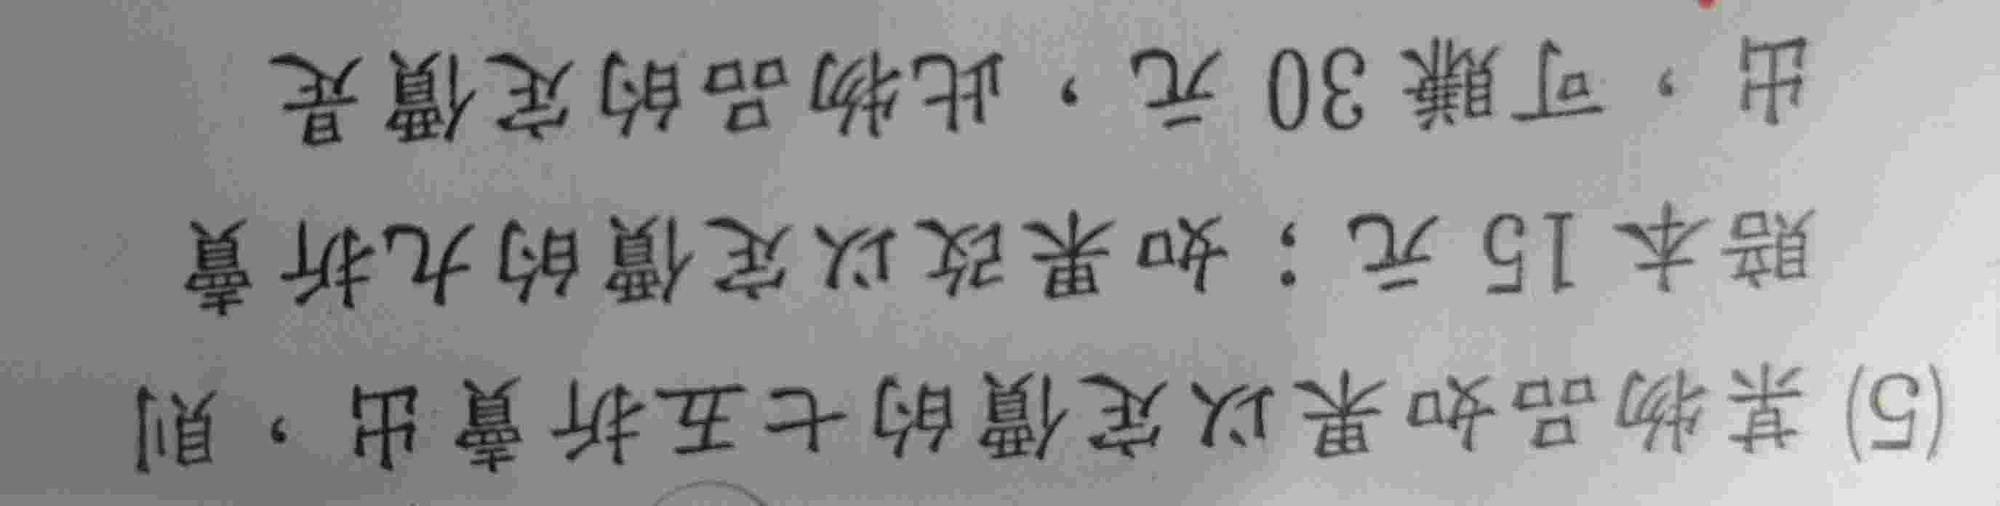 (5) 某物品如果以定價的七五折賣出，則
賠本 15 元；如果改以定價的九折賣
出，可賺 30 元，此物品的定價是